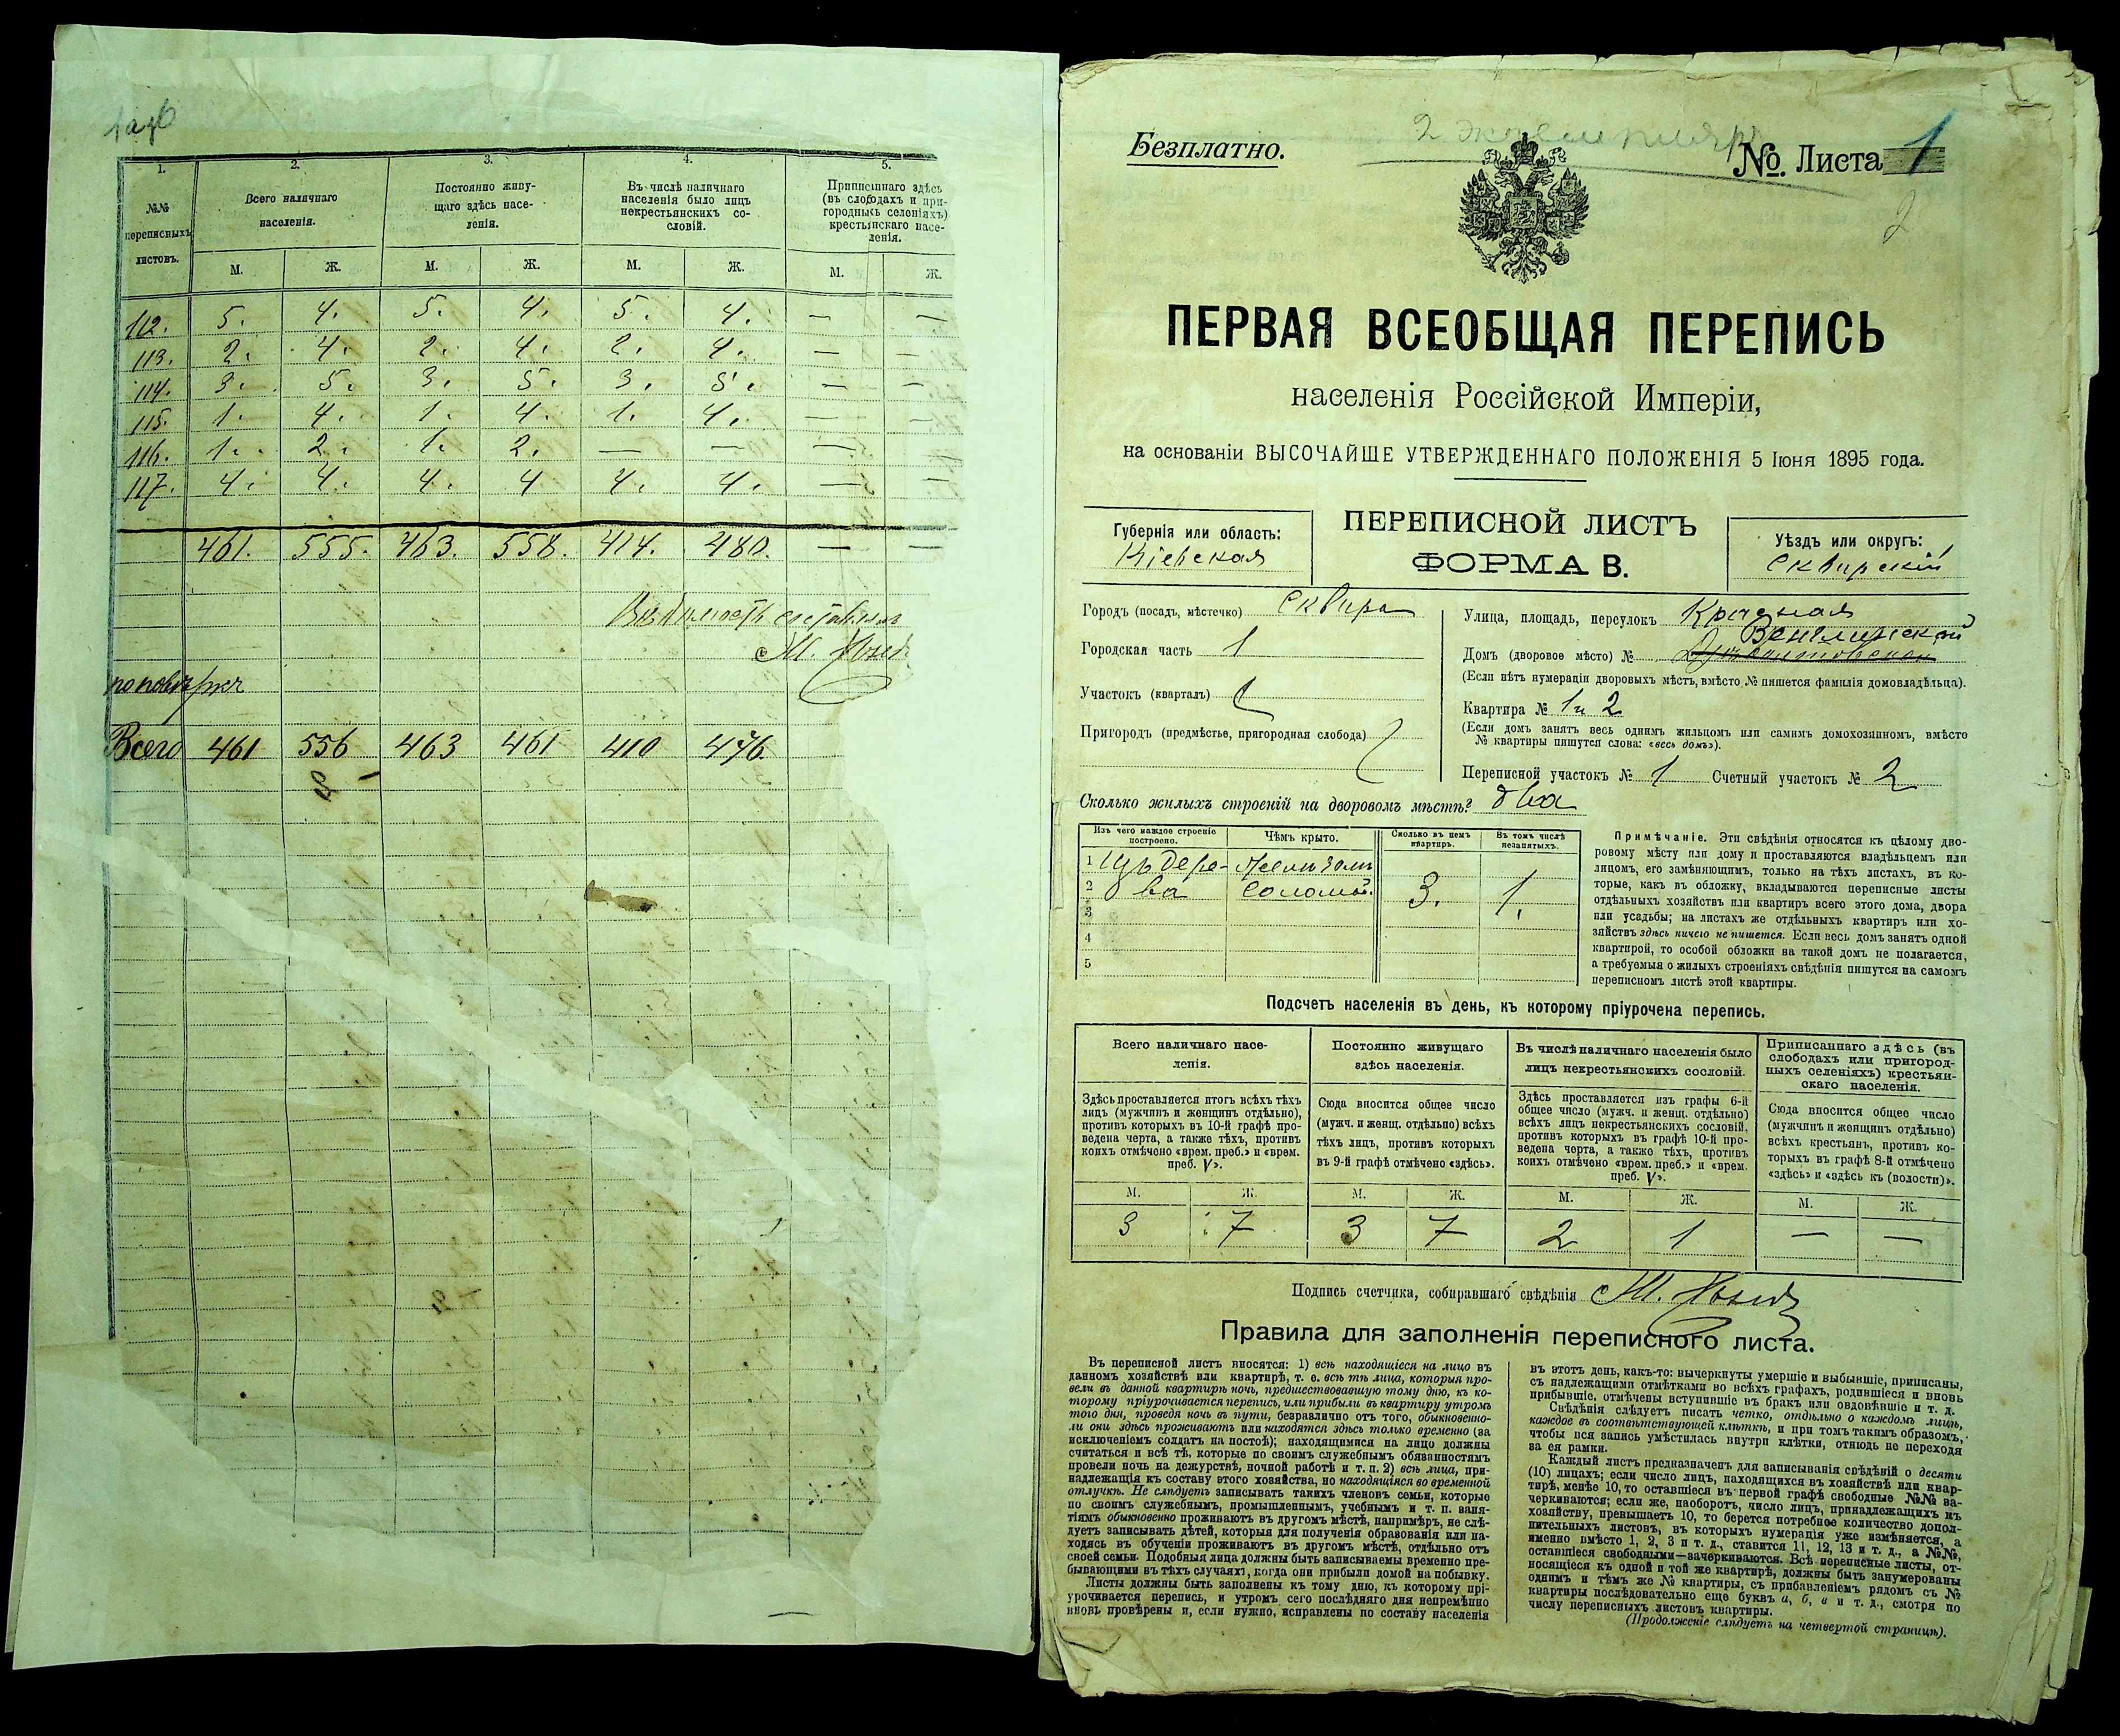 1. 2. 3. 4. 5.
№№ переписныхъ листовъ.
Всего наличнаго населенія.
Постоянно живущаго здѣсь населенія.
Въ числѣ наличнаго населенія было лицъ некрестьянскихъ сословій.
Приписаннаго здѣсь (въ слободахъ и пригородныхъ селеніяхъ) крестьянскаго населенія.
М. Ж. М. Ж. М. Ж. М. Ж.
112. 5. 4. 5. 4. 5. 4. — —
113. 2. 4. 2. 4. 2. 4. — —
114. 3. 5. 3. 5. 3. 5. — —
115. 1. 4. 1. 4. 1. 4. — —
116. 1. 2. 1. 2. — — — —
117. 4. 4. 4. 4 4. 4. — —
461. 555. 463. 558. 414. 480. — —
Всего 461 556 463 461 410 476.
Безплатно.
2 экземпляръ
№. Листа 1
2
ПЕРВАЯ ВСЕОБЩАЯ ПЕРЕПИСЬ
населенія Россійской Имперіи,
на основаніи ВЫСОЧАЙШЕ УТВЕРЖДЕННАГО ПОЛОЖЕНІЯ 5 Іюня 1895 года.
Губернія или область:
Кіевская
ПЕРЕПИСНОЙ ЛИСТЪ
ФОРМА В.
Уѣздъ или округъ:
Сквирскій
Городъ (посадъ, мѣстечко) Сквира
Городская часть 1
Участокъ (кварталъ)
Пригородъ (предмѣстье, пригородная слобода)
Улица, площадь, переулокъ Красная
Домъ (дворовое мѣсто) №
(Если нѣтъ нумераціи дворовыхъ мѣстъ, вмѣсто № пишется фамилія домовладѣльца).
Квартира № 1 и 2
(Если домъ занятъ весь однимъ жильцомъ или самимъ домохозяиномъ, вмѣсто
№ квартиры пишутся слова: «весь домъ»).
Переписной участокъ № 1 Счетный участокъ № 2
Сколько жилыхъ строеній на дворовомъ мѣстѣ? два
Изъ чего каждое строеніе построено.
Чѣмъ крыто.
Сколько въ немъ квартиръ.
Въ томъ числѣ незанятыхъ.
1 Изъ дере- желѣзомъ
2 ва соломой. 3. 1.
3
4
5
Примѣчаніе. Эти свѣдѣнія относятся къ цѣлому дво-
ровому мѣсту или дому и проставляются владѣльцемъ или
лицомъ, его замѣняющимъ, только на тѣхъ листахъ, въ ко-
торые, какъ въ обложку, вкладываются переписные листы
отдѣльныхъ хозяйствъ или квартиръ всего этого дома, двора
или усадьбы; на листахъ же отдѣльныхъ квартиръ или хо-
зяйствъ здѣсь ничего не пишется. Если весь домъ занятъ одной
квартирой, то особой обложки на такой домъ не полагается,
а требуемыя о жилыхъ строеніяхъ свѣдѣнія пишутся на самомъ
переписномъ листѣ этой квартиры.
Подсчетъ населенія въ день, къ которому пріурочена перепись.
Всего наличнаго насе-
ленія.
Здѣсь проставляется итогъ всѣхъ тѣхъ
лицъ (мужчинъ и женщинъ отдѣльно),
противъ которыхъ въ 10-й графѣ про-
ведена черта, а также тѣхъ, противъ
коихъ отмѣчено «врем. преб.» и «врем.
преб. V».
Постоянно живущаго
здѣсь населенія.
Сюда вносится общее число
(мужч. и женщ. отдѣльно) всѣхъ
тѣхъ лицъ, противъ которыхъ
въ 9-й графѣ отмѣчено «здѣсь».
Въ числѣ наличнаго населенія было
лицъ некрестьянскихъ сословій.
Здѣсь проставляется изъ графы 6-й
общее число (мужч. и женщ. отдѣльно)
всѣхъ лицъ некрестьянскихъ сословій,
противъ которыхъ въ графѣ 10-й про-
ведена черта, а также тѣхъ, противъ
коихъ отмѣчено «врем. преб.» и «врем.
преб. V».
Приписаннаго здѣсь (въ
слободахъ или пригород-
ныхъ селеніяхъ) крестьян-
скаго населенія.
Сюда вносится общее число
(мужчинъ и женщинъ отдѣльно)
всѣхъ крестьянъ, противъ ко-
торыхъ въ графѣ 8-й отмѣчено
«здѣсь» и «здѣсь къ (волости)».
М. Ж. М. Ж. М. Ж. М. Ж.
3 7 3 7 2 1 — —
Подпись счетчика, собиравшаго свѣдѣнія
Правила для заполненія переписного листа.
Въ переписной листъ вносятся: 1) всѣ находящіеся на лицо въ
данномъ хозяйствѣ или квартирѣ, т. е. всѣ тѣ лица, которыя про-
вели въ данной квартирѣ ночь, предшествовавшую тому дню, къ ко-
торому пріурочивается перепись, или прибыли въ квартиру утромъ
того дня, проведя ночь въ пути, безразлично отъ того, обыкновенно-
ли они здѣсь проживаютъ или находятся здѣсь только временно (за
исключеніемъ солдатъ на постоѣ); находящимися на лицо должны
считаться и всѣ тѣ, которые по своимъ служебнымъ обязанностямъ
провели ночь на дежурствѣ, ночной работѣ и т. п. 2) всѣ лица, при-
надлежащія къ составу этого хозяйства, но находящіяся во временной
отлучкѣ. Не слѣдуетъ записывать такихъ членовъ семьи, которые
по своимъ служебнымъ, промышленнымъ, учебнымъ и т. п. заня-
тіямъ обыкновенно проживаютъ въ другомъ мѣстѣ, напримѣръ, не слѣ-
дуетъ записывать дѣтей, которыя для полученія образованія или на-
ходясь въ обученіи проживаютъ въ другомъ мѣстѣ, отдѣльно отъ
своей семьи. Подобныя лица должны быть записываемы временно пре-
бывающими въ тѣхъ случаяхъ, когда они прибыли домой на побывку.
Листы должны быть заполнены къ тому дню, къ которому прі-
урочивается перепись, и утромъ сего послѣдняго дня непремѣнно
вновь провѣрены и, если нужно, исправлены по составу населенія
въ этотъ день, какъ-то: вычеркнуты умершіе и выбывшіе, приписаны,
съ надлежащими отмѣтками во всѣхъ графахъ, родившіеся и вновь
прибывшіе, отмѣчены вступившіе въ бракъ или овдовѣвшіе и т. д.
Свѣдѣнія слѣдуетъ писать четко, отдѣльно о каждомъ лицѣ,
каждое въ соотвѣтствующей клѣткѣ, и при томъ такимъ образомъ,
чтобы вся запись умѣстилась внутри клѣтки, отнюдь не переходя
за ея рамки.
Каждый листъ предназначенъ для записыванія свѣдѣній о десяти
(10) лицахъ; если число лицъ, находящихся въ хозяйствѣ или квар-
тирѣ, менѣе 10, то оставшіеся въ первой графѣ свободные №№ за-
черкиваются; если же, наоборотъ, число лицъ, принадлежащихъ къ
хозяйству, превышаетъ 10, то берется потребное количество допол-
нительныхъ листовъ, въ которыхъ нумерація уже измѣняется, а
именно вмѣсто 1, 2, 3 и т. д., ставится 11, 12, 13 и т. д., а №№,
оставшіеся свободными—зачеркиваются. Всѣ переписные листы, от-
носящіеся къ одной и той же квартирѣ, должны быть занумерованы
однимъ и тѣмъ же № квартиры, съ прибавленіемъ рядомъ съ №
квартиры послѣдовательно еще буквъ а, б, в и т. д., смотря по
числу переписныхъ листовъ квартиры.
(Продолженіе слѣдуетъ на четвертой страницѣ).